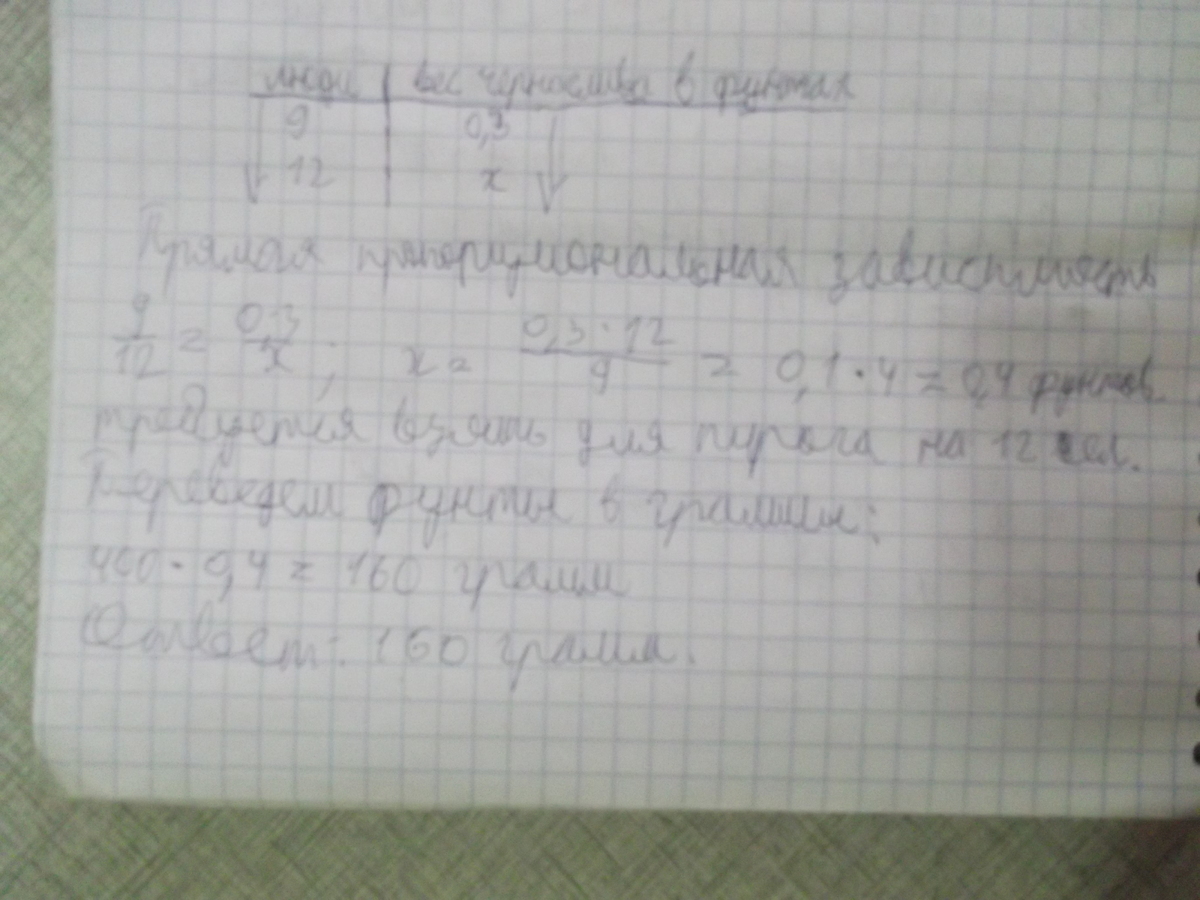 люди | вес чернослива в фунтах
9 0,3
12 x
Прямая пропорциональная зависимость
9/12 = 0,3/x ; x = 0,3·12/9 = 0,1·4 = 0,4 фунтов
требуется взять для пирога на 12 чел.
Переведем фунты в граммы:
400·0,4 = 160 грамм
Ответ: 160 грамм.